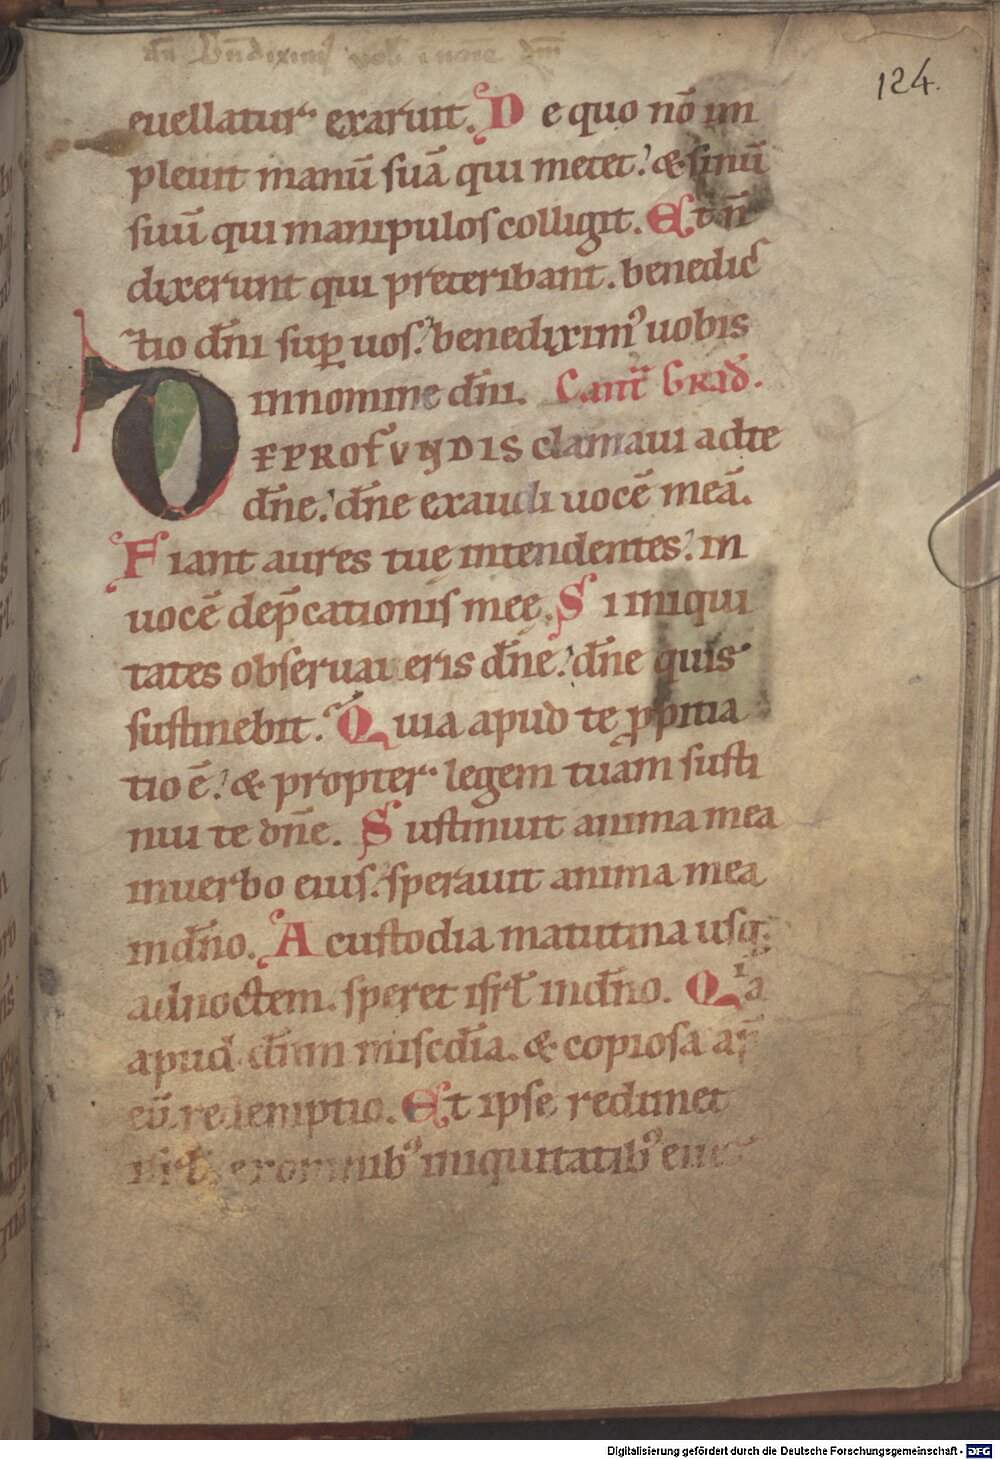 124.
euellatur exaruit. De quo nō im
pleuit manū suā qui metet: & sinū
suū qui manipulos colligit. Et n̄
dixerunt qui preteribant. benedic
tio dn̄i sup uos: benediximꝰ uobis
innomine dn̄i. Cant̄ Grad̄.
DE PROFVNDIS clamaui adte
dn̄e: dn̄e exaudi uocē meā.
Fiant aures tuę intendentes: in
uocē dep̄cationis meę. Si iniqui
tates obseruaueris dn̄e: dn̄e quis
sustinebit: Quia apud te ꝓpitia
tio ē: & propter legem tuam susti
nui te dn̄e. Sustinuit anima mea
inuerbo eius: sperauit anima mea
indn̄o. A custodia matutina usq;
adnoctem. speret isrł indn̄o. Qia
apud dn̄m misc̄dia. & copiosa ap̄
eū redemptio. Et ipse redimet
isrł exomnibꝰ iniquitatibꝰ eius
Digitalisierung gefördert durch die Deutsche Forschungsgemeinschaft - DFG